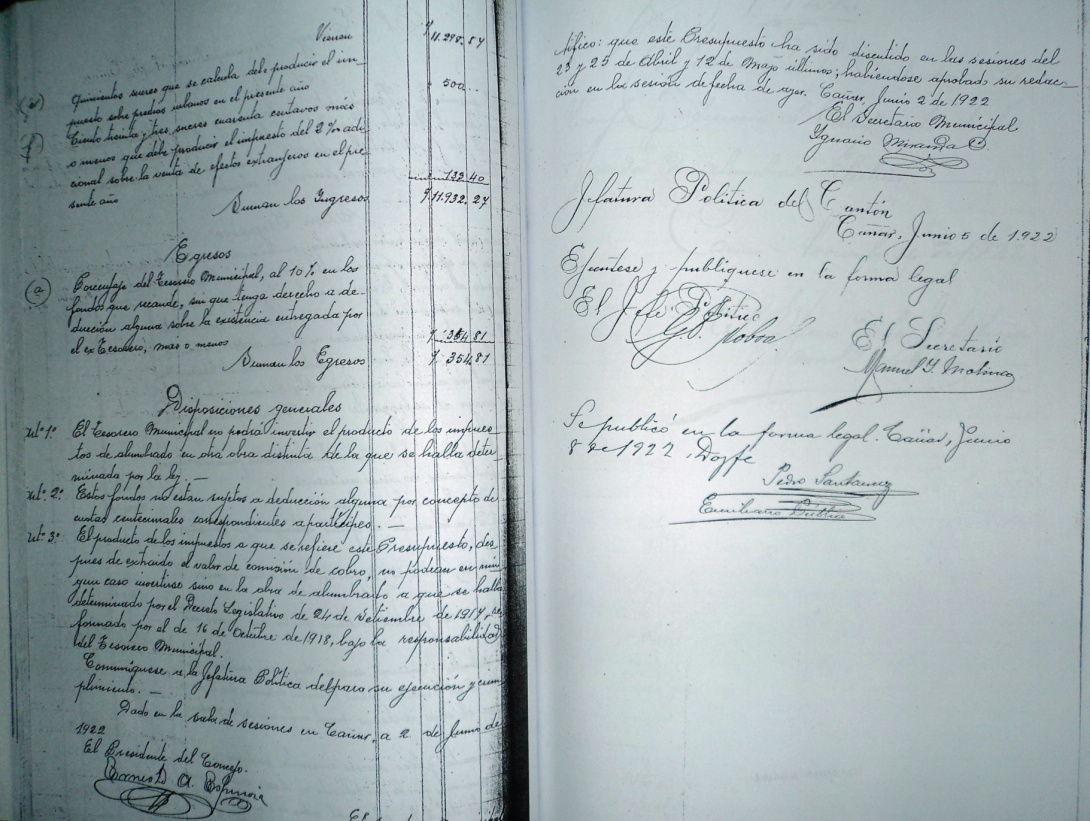 Vienen $ 11.298.84
(e) Quinientos sucres que se calcula debe producir el im-
puesto sobre predios urbanos en el presente año 500..
(f) Ciento treinta y tres sucres cuarenta centavos más
o menos que debe producir el impuesto del 2% adi-
cional sobre la venta de efectos extranjeros en el pre-
sente año 133.40
Suman los Ingresos $ 11.932.24
Egresos
(a) Porcentaje del Tesorero Municipal, al 10% en los
fondos que recaude, sin que tenga derecho a de-
ducción alguna sobre la existencia entregada por
el ex Tesorero, más o menos $ 354.81
Suman los Egresos $ 354.81
Disposiciones generales
Art. 1º. El Tesorero Municipal no podrá invertir el producto de los impues-
tos de alumbrado en otra obra distinta de la que se halla deter-
minada por la ley. —
Art. 2º. Estos fondos no están sujetos a deducción alguna por concepto de
cuotas centecimales correspondientes a partícipes. —
Art. 3º. El producto de los impuestos a que se refiere este Presupuesto, des-
pues de extraido el valor de comisión de cobro, no podrán en nin-
gun caso invertirse sino en la obra de alumbrado a que se halla
determinado por el Decreto Legislativo de 24 de Setiembre de 1917, re-
formado por el de 16 de Octubre de 1918, bajo la responsabilidad
del Tesorero Municipal.
Comuníquese a la Jefatura Política para su ejecución y cum-
plimiento. —
Dado en la sala de sesiones en Cañar, a 2 de Junio de
1922
El Presidente del Concejo.
Ernesto A.
tifico: que este Presupuesto ha sido discutido en las sesiones del
23 y 25 de Abril y 12 de Mayo últimos; habiendose aprobado su redac-
ción en la sesión de fecha de ayer. Cañar, Junio 2 de 1922
El Secretario Municipal
Ygnacio Miranda C.
Jefatura Política del Cantón
Cañar, Junio 5 de 1.922
Ejecútese y publíquese en la forma legal
El Jefe Político
El Secretario
Manuel Y. Molina
Se publicó en la forma legal. Cañar, Junio
8 de 1922, Doy fe
Pedro